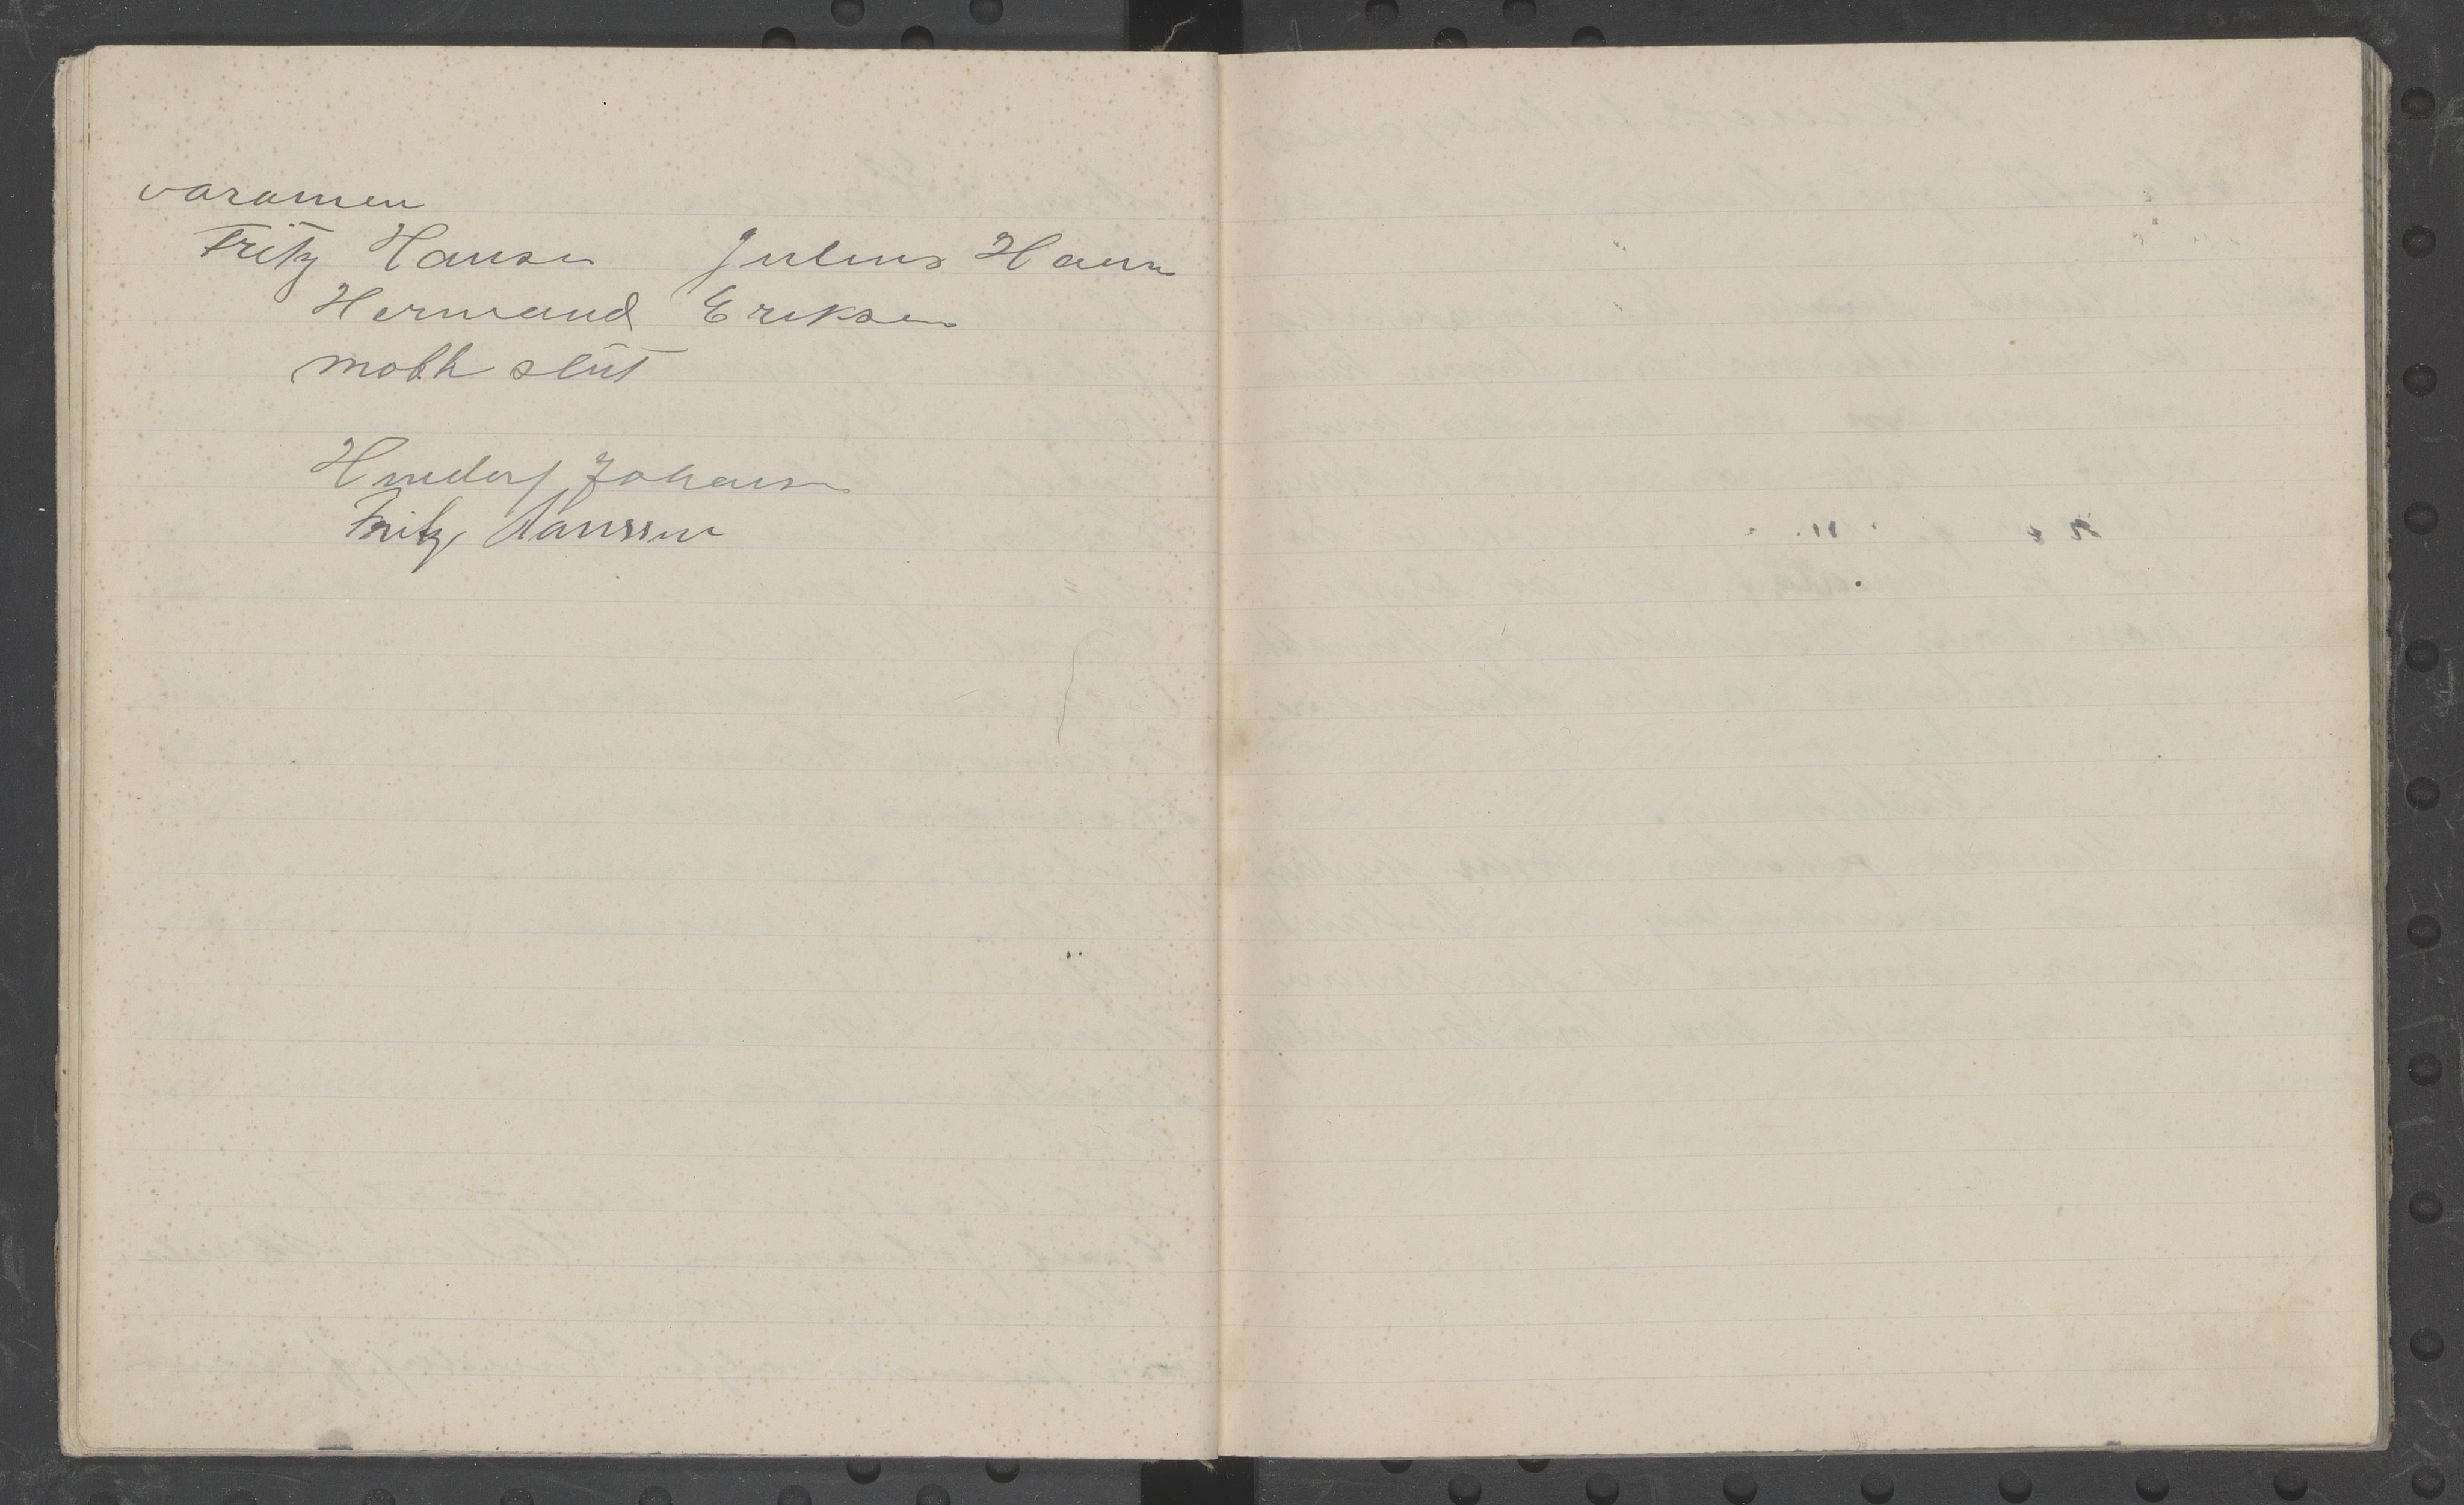 varamen
Fritz Hansen Julius Hansn
Hermand Eriksen
møtte slut
Hindorf Johansen
Fritz Hanssen